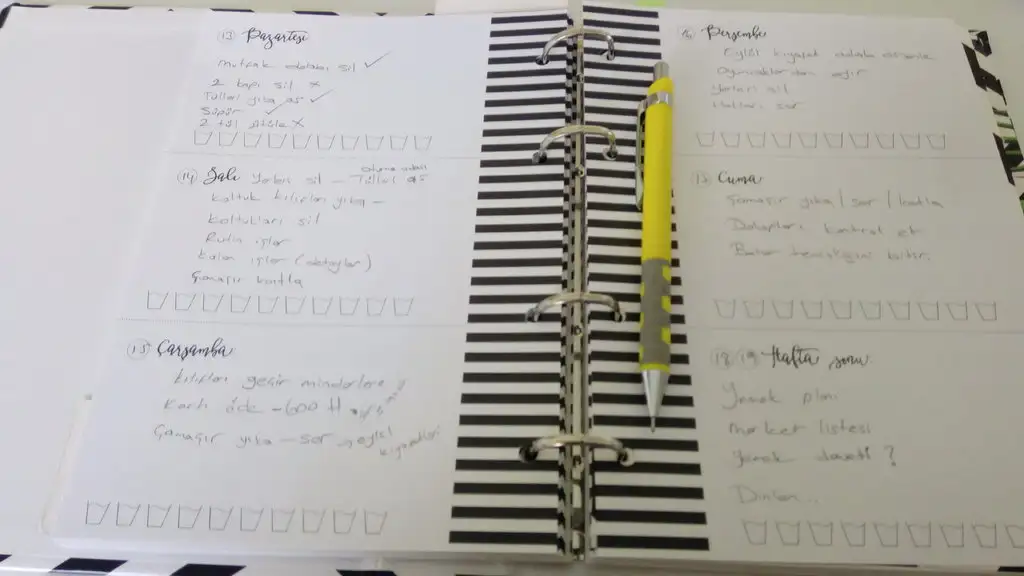 13 Pazartesi
mutfak dolabı sil ✓
2 kapı sil x
Tülleri yıka as ✓
Süpür ✓
2 tül ütüle x
14 Salı Yerleri sil - Tülleri as
Koltuk kılıfları yıka -
Koltukları sil
Rutin işler
Kalan işler (detaylar)
Çamaşır katla
15 Çarşamba
Kılıfları geçir minderlere
Kartı öde - 600 tl
Çamaşır yıka - ser
kıyafetleri
16 Perşembe
Eylül kıyafet
Oyuncakları
Yerleri sil
Halıları ser
17 Cuma
Çamaşır yıka / ser / katla
Dolapları kontrol et
temizliğini bitir.
18 19 Hafta sonu
Yemek planı
Market listesi
Yemek daveti?
Dinlen...